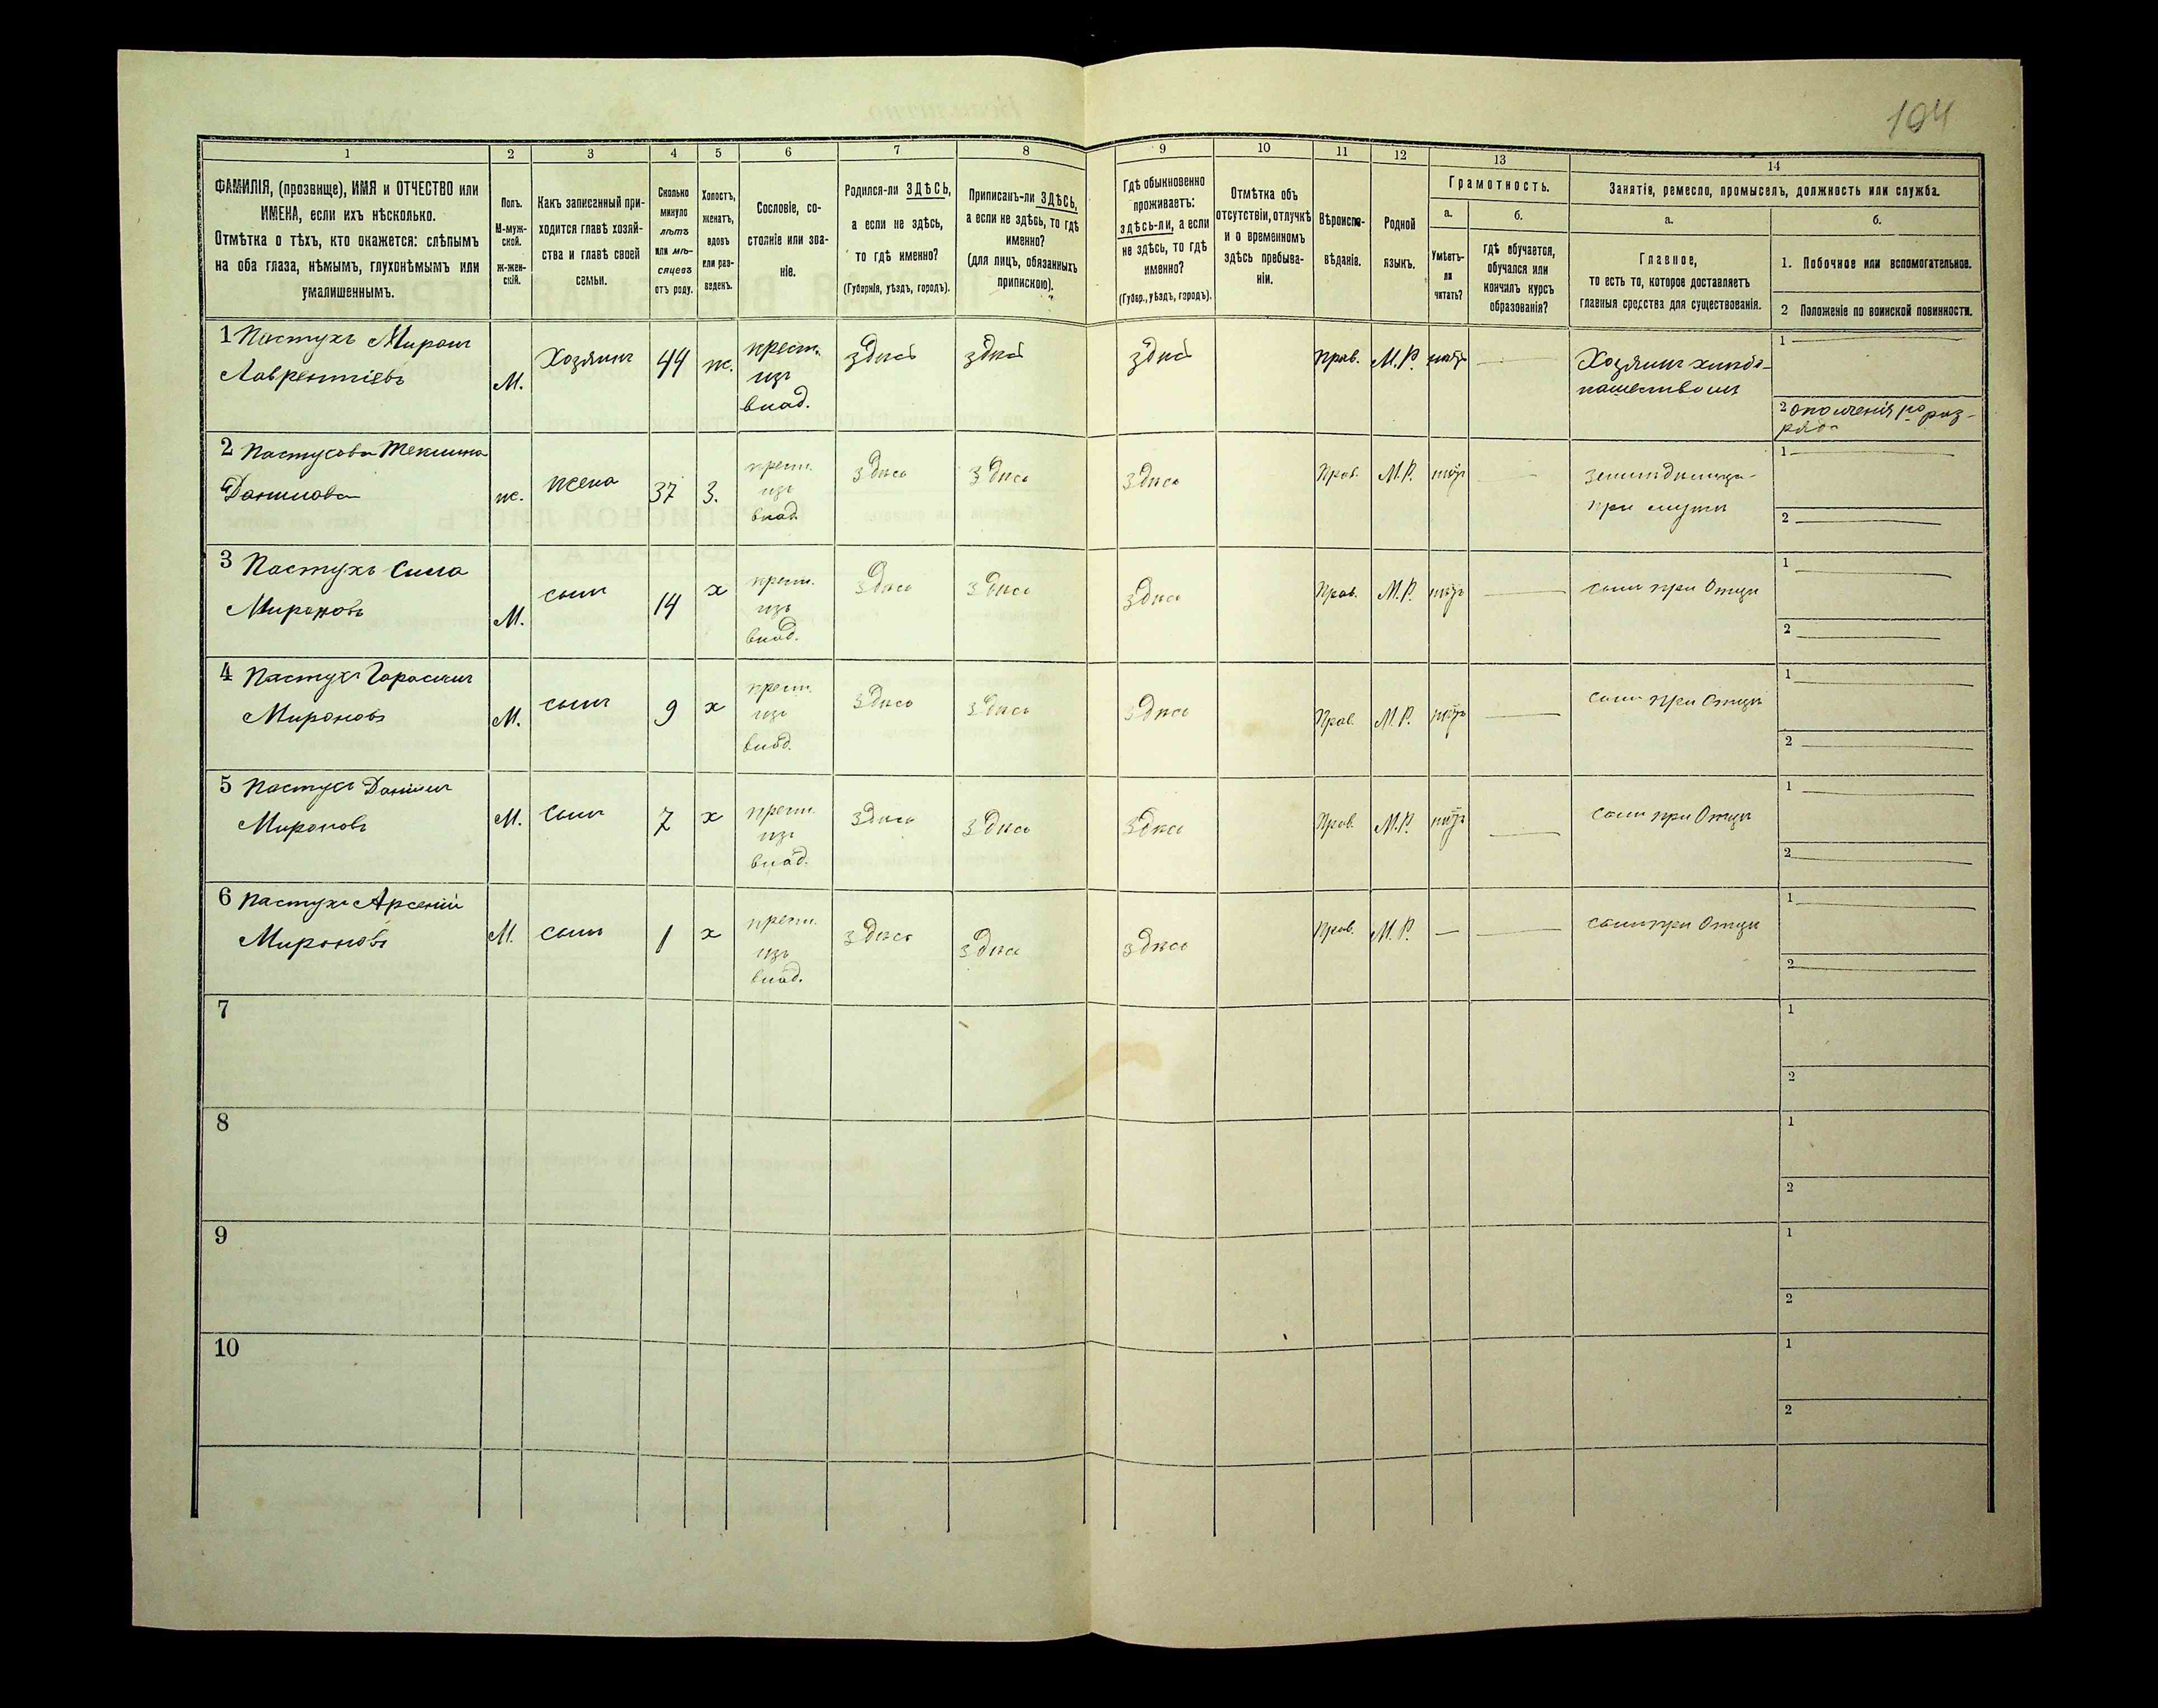 194
1
2
3
4
5
6
7
8
9
10
11
12
13
14
ФАМИЛІЯ, (прозвище), ИМЯ и ОТЧЕСТВО или
ИМЕНА, если ихъ нѣсколько.
Отмѣтка о тѣхъ, кто окажется: слѣпымъ
на оба глаза, нѣмымъ, глухонѣмымъ или
умалишеннымъ.
Полъ.
М-муж-
ской.
ж-жен-
скій.
Какъ записанный при-
ходится главѣ хозяй-
ства и главѣ своей
семьи.
Сколько
минуло
лѣтъ
или мѣ-
сяцевъ
отъ роду.
Холостъ,
женатъ,
вдовъ
или раз-
веденъ.
Сословіе, со-
стояніе или зва-
ніе.
Родился-ли ЗДѢСЬ,
а если не здѣсь,
то гдѣ именно?
(Губернія, уѣздъ, городъ).
Приписанъ-ли ЗДѢСЬ,
а если не здѣсь, то гдѣ
именно?
(для лицъ, обязанныхъ
припискою).
Гдѣ обыкновенно
проживаетъ:
здѣсь-ли, а если
не здѣсь, то гдѣ
именно?
(Губер., уѣздъ, городъ).
Отмѣтка объ
отсутствіи, отлучкѣ
и о временномъ
здѣсь пребыва-
ніи.
Вѣроиспо-
вѣданіе.
Родной
языкъ.
Грамотность.
а.
б.
Умѣетъ-
ли
читать?
гдѣ обучается,
обучался или
кончилъ курсъ
образованія?
Занятія, ремесло, промыселъ, должность или служба.
а.
б.
Главное,
то есть то, которое доставляетъ
главныя средства для существованія.
1. Побочное или вспомогательное.
2 Положеніе по воинской повинности.
1 Пастухъ Миронъ
Лаврентіевъ
М.
Хозяинъ
44
ж.
крест.
изъ
влад.
здѣсь
здѣсь
здѣсь
Прав.
М.Р.
нѣтъ
Хозяинъ хлѣбо-
пашествомъ
1
2 Ополченія 1го раз-
ряда
2 Пастухова Теклина
Данилова
ж.
жена
37
З.
крест.
изъ
влад.
здѣсь
здѣсь
здѣсь
Прав.
М.Р.
нѣтъ
земледѣлица
при мужѣ
1
2
3 Пастухъ Сила
Мироновъ
М.
сынъ
14
х
крест.
изъ
влад.
здѣсь
здѣсь
здѣсь
Прав.
М.Р.
нѣтъ
сынъ при Отцѣ
1
2
4 Пастухъ Гарасимъ
Мироновъ
М.
сынъ
9
х
крест.
изъ
влад.
здѣсь
здѣсь
здѣсь
Прав.
М.Р.
нѣтъ
сынъ при Отцѣ
1
2
5 Пастухъ Даніилъ
Мироновъ
М.
сынъ
7
х
крест.
изъ
влад.
здѣсь
здѣсь
здѣсь
Прав.
М.Р.
нѣтъ
сынъ при Отцѣ
1
2
6 Пастухъ Арсеній
Мироновъ
М.
сынъ
1
х
крест.
изъ
влад.
здѣсь
здѣсь
здѣсь
Прав.
М.Р.
сынъ при Отцѣ
1
2
7
1
2
8
1
2
9
1
2
10
1
2